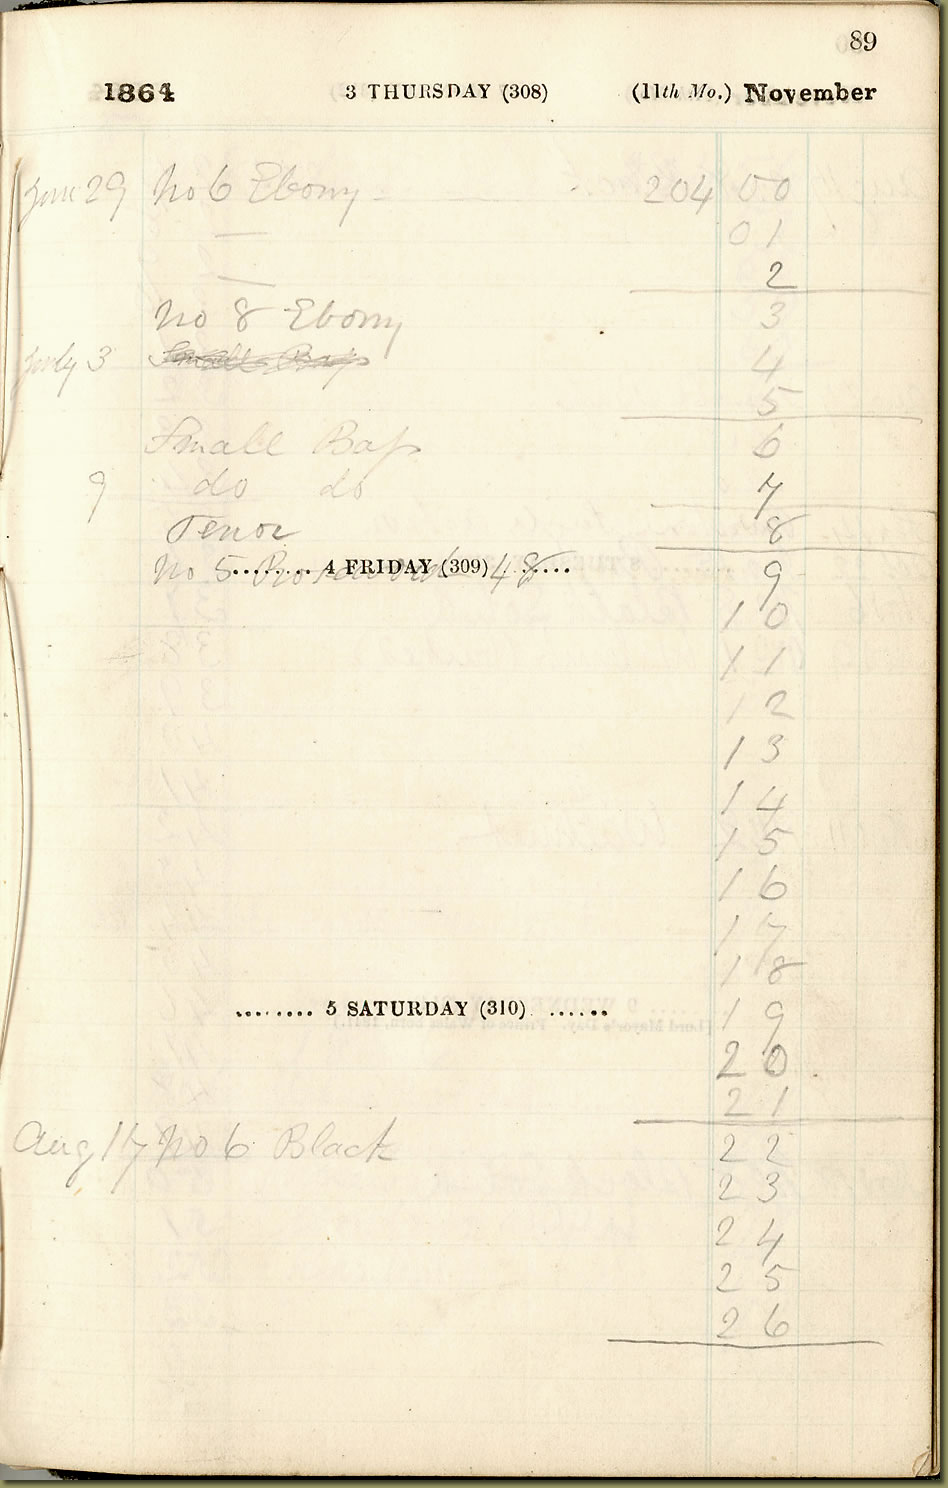 89
1864 3 THURSDAY (308) (11th Mo.) November
June 29 No 6 Ebony 204 00
— 01
— 2
No 8 Ebony 3
July 3 Small Bass 4
5
Small Bass 6
9 do do 7
Tenor 8
No 5 Rosewood 48 9
4 FRIDAY (309)
10
11
12
13
14
15
16
17
18
5 SATURDAY (310) 19
20
21
Aug 17 No 6 Black 22
23
24
25
26